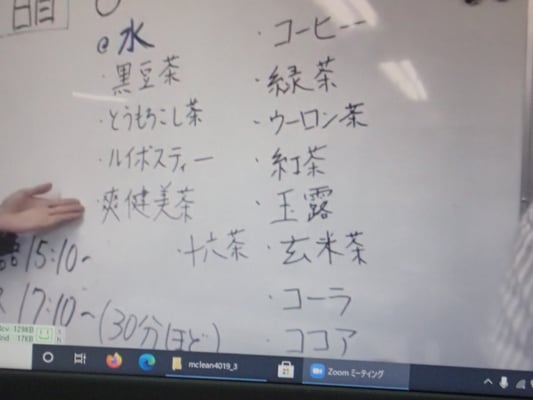 @水
・黒豆茶
・とうもろこし茶
・ルイボスティー
・爽健美茶
・十六茶
・コーヒー
・緑茶
・ウーロン茶
・紅茶
・玉露
・玄米茶
・コーラ
・ココア
15:10~
17:10~(30分ほど)
17KB
mclean4019_3
Zoom ミーティング